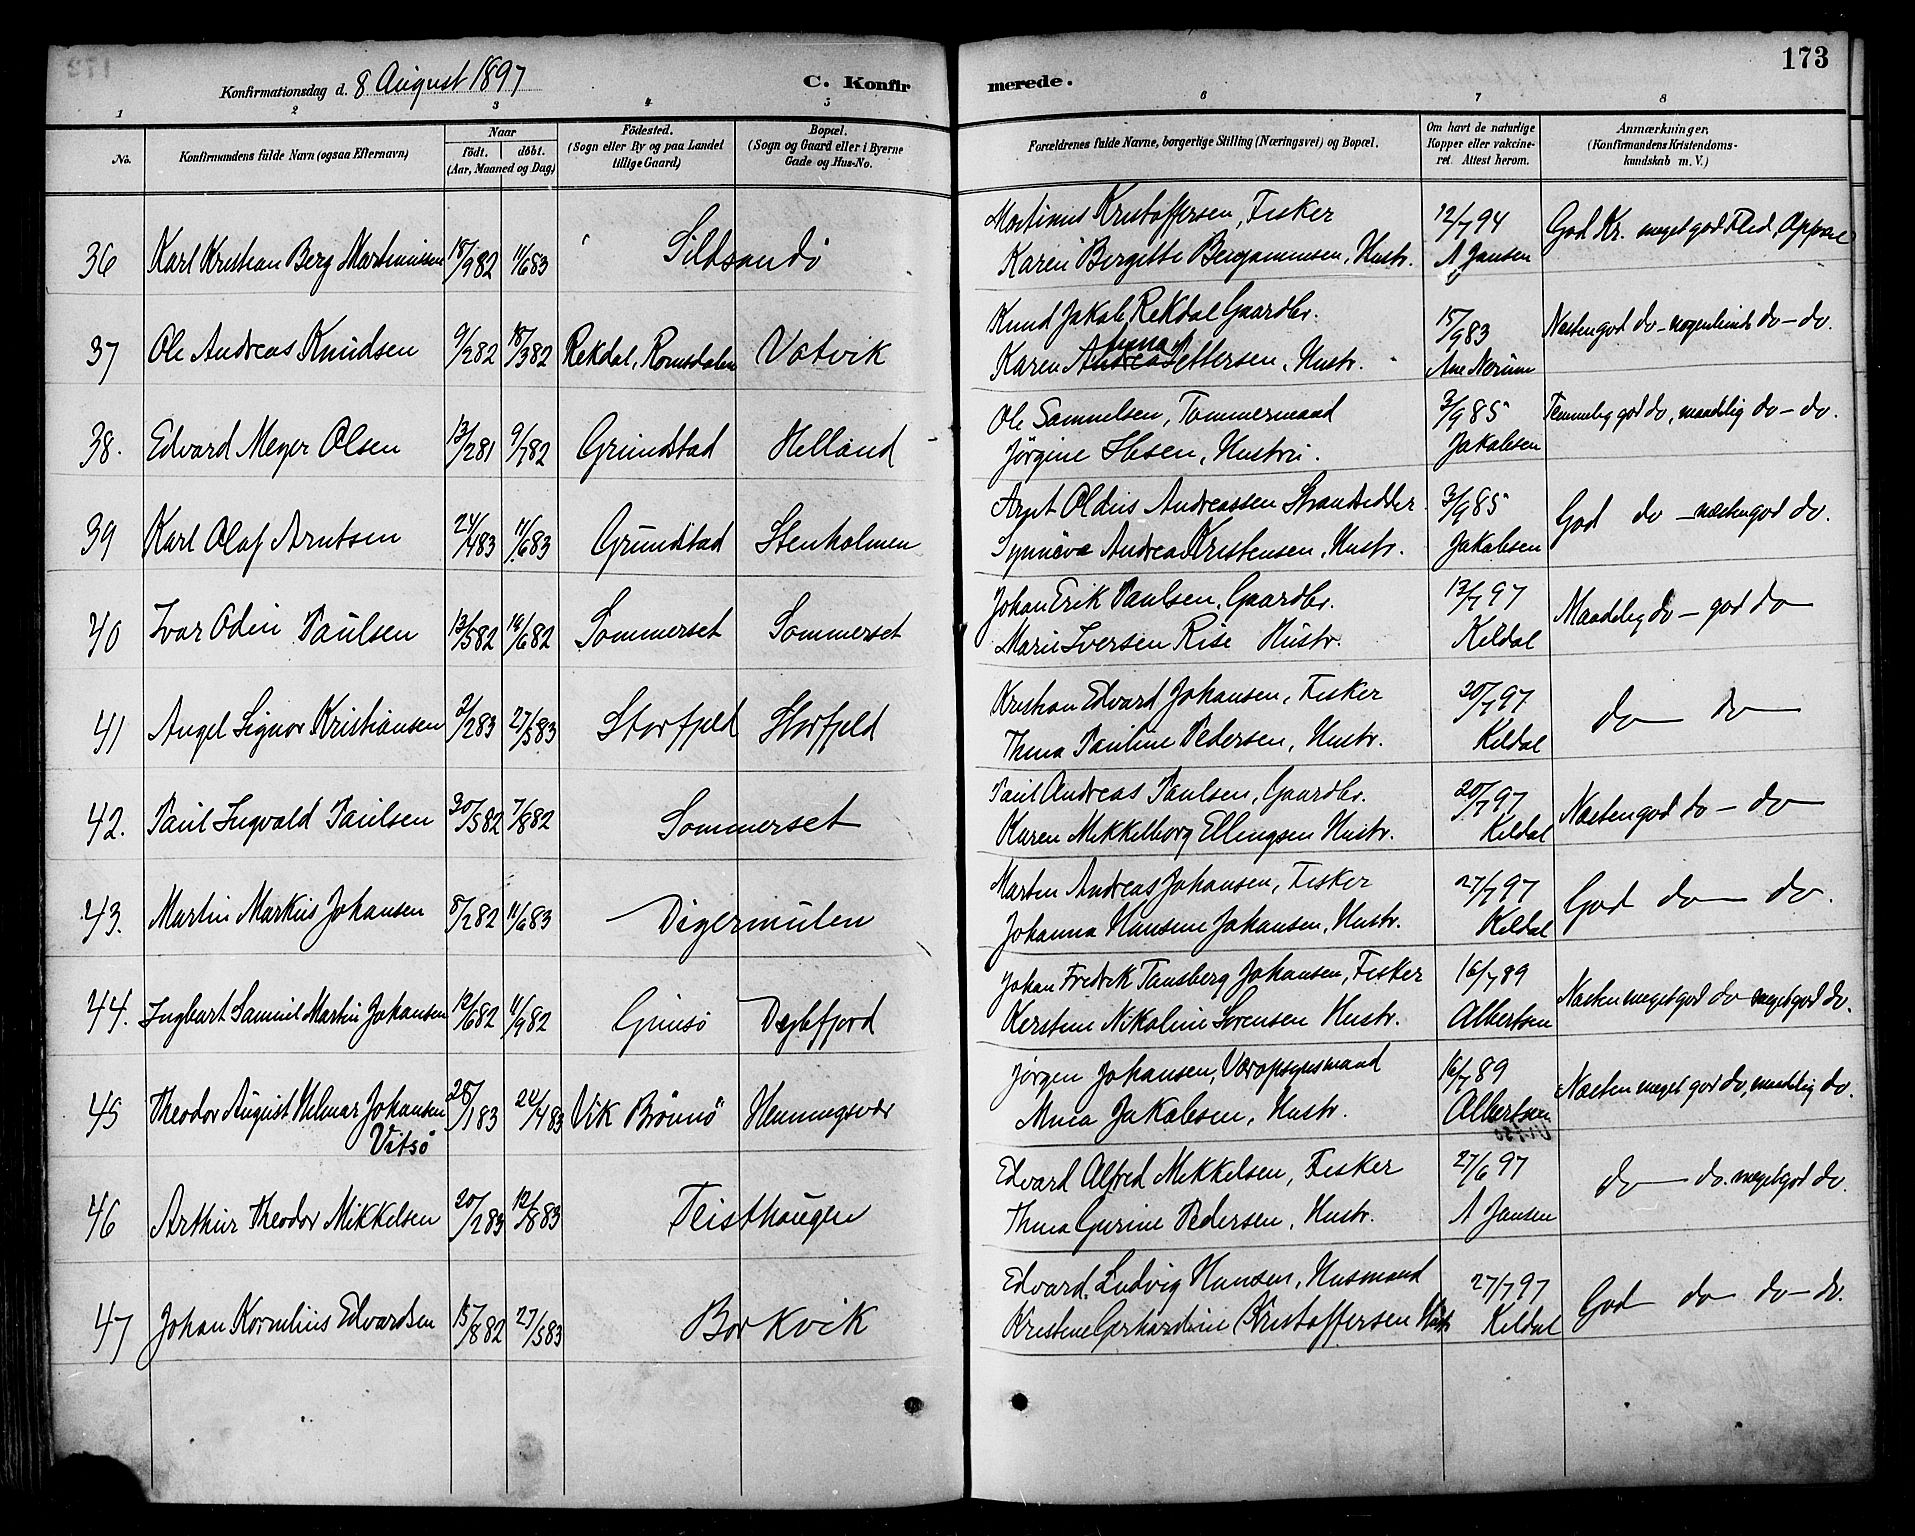 173
Konfirmationsdag d. 8 August 1897
C. Konfirmerede.
1 2 3 4 5 6 7 8
No. Konfirmandens fulde Navn (ogsaa Efternavn) Naar födt. döbt. (Aar, Maaned og Dag) Födested. (Sogn eller By og paa Landet tillige Gaard) Bopæl. (Sogn og Gaard eller i Byerne Gade og Hus-No. Forældrenes fulde Navne, borgerlige Stilling (Næringsvei) og Bopæl. Om havt de naturlige Kopper eller vakcineret. Attest herom. Anmærkninger. (Konfirmandens Kristendomskundskab m. V.)
36 Karl Kristian Berg Martinussen 18/9 82 11/6 83 Sildsandö
Martinus Kristoffersen, Fisker 12/7 94 God Kr. meget god Flid, Opførsel
Karen Bergitte Benjaminsen, Hustr. A Jansen
37 Ole Andreas Knudsen 9/2 82 18/3 82 Rekdal, Romsdalen Vatvik
Knud Jakob Rekdal Gaardbr. 15/9 83 Næsten god do - nogenlunde do - do.
Karen Anna Andrea Pettersen, Hustr. Ane Norum
38. Edvard Meyer Olsen 13/2 81 9/7 82 Grundstad Helland
Ole Samuelsen, Tømmermand 3/9 85 Temmelig god do, maadelig do - do.
Jørgine Ibsen, Hustru. Jakobsen
39 Karl Olaf Arntsen 24/4 83 11/6 83 Grundstad Stenholmen
Arnt Oldus Andreassen Strandsidder 3/9 85 God do - næsten god do.
Synnøva Andrea Kristensen, Hustr. Jakobsen
40 Ivar Odin Paulsen 13/5 82 14/6 82 Sommerset Sommerset
Johan Erik Paulsen, Gaardbr. 13/7 97 Maadelig do - god do
Marie Iversen Rise Hustr. Kildal
41 Angel Signor Kristiansen 2/2 83 27/5 83 Storfjeld Storfjeld
Kristian Edvard Johansen, Fisker 20/7 97 do do
Thina Pauline Pedersen, Hustr. Kildal
42. Paul Ingvald Paulsen 30/5 82 7/8 82 Sommerset
Paul Andreas Paulsen, Gaardbr. 20/7 97 Næsten god do - do
Karen Mikkelborg Ellingsen Hustr. Kildal
43. Martin Markus Johansen 8/2 82 11/6 83 Digermulen
Martin Andreas Johansen, Fisker 27/7 97 God do - do.
Johanna Hansine Johansen, Hustr. Kildal
44. Ingbart Samuel Martin Johansen 12/6 82 11/9 82 Gimsö Døglefjord
Johan Fredrik Tansberg Johansen, Fisker 16/7 89 Næsten meget god do meget god do.
Kerstine Nikoline Sørensen Hustr. Albertsen
45 Theodor August Hilmar Johansen 28/1 83 22/4 83 Vik Brönnö Henningsvær
Vitsö
Jørgen Johansen, Væropsynsmand 16/7 89 Næsten meget god do, maadelig do.
Anna Jakobsen, Hustr. Albertsen
46 Arthur Theodor Mikkelsen 20/2 83 12/8 83 Teisthaugen
Edvard Alfred Mikkelsen, Fisker 27/6 97 do do. meget god do.
Thina Gurine Pedersen, Hustr. A Jansen
47 Johan Kornelius Edvardsen 15/8 82 27/5 83 Borkvik
Edvard Ludvig Hansen, Husmand 27/7 97 God do do - do.
Kristine Gerhardine Kristoffersen Hustr Kildal